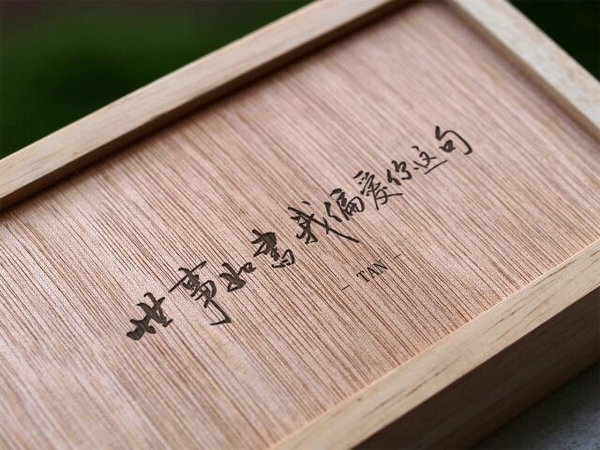 世事如書我偏爱你这句
- TAN -